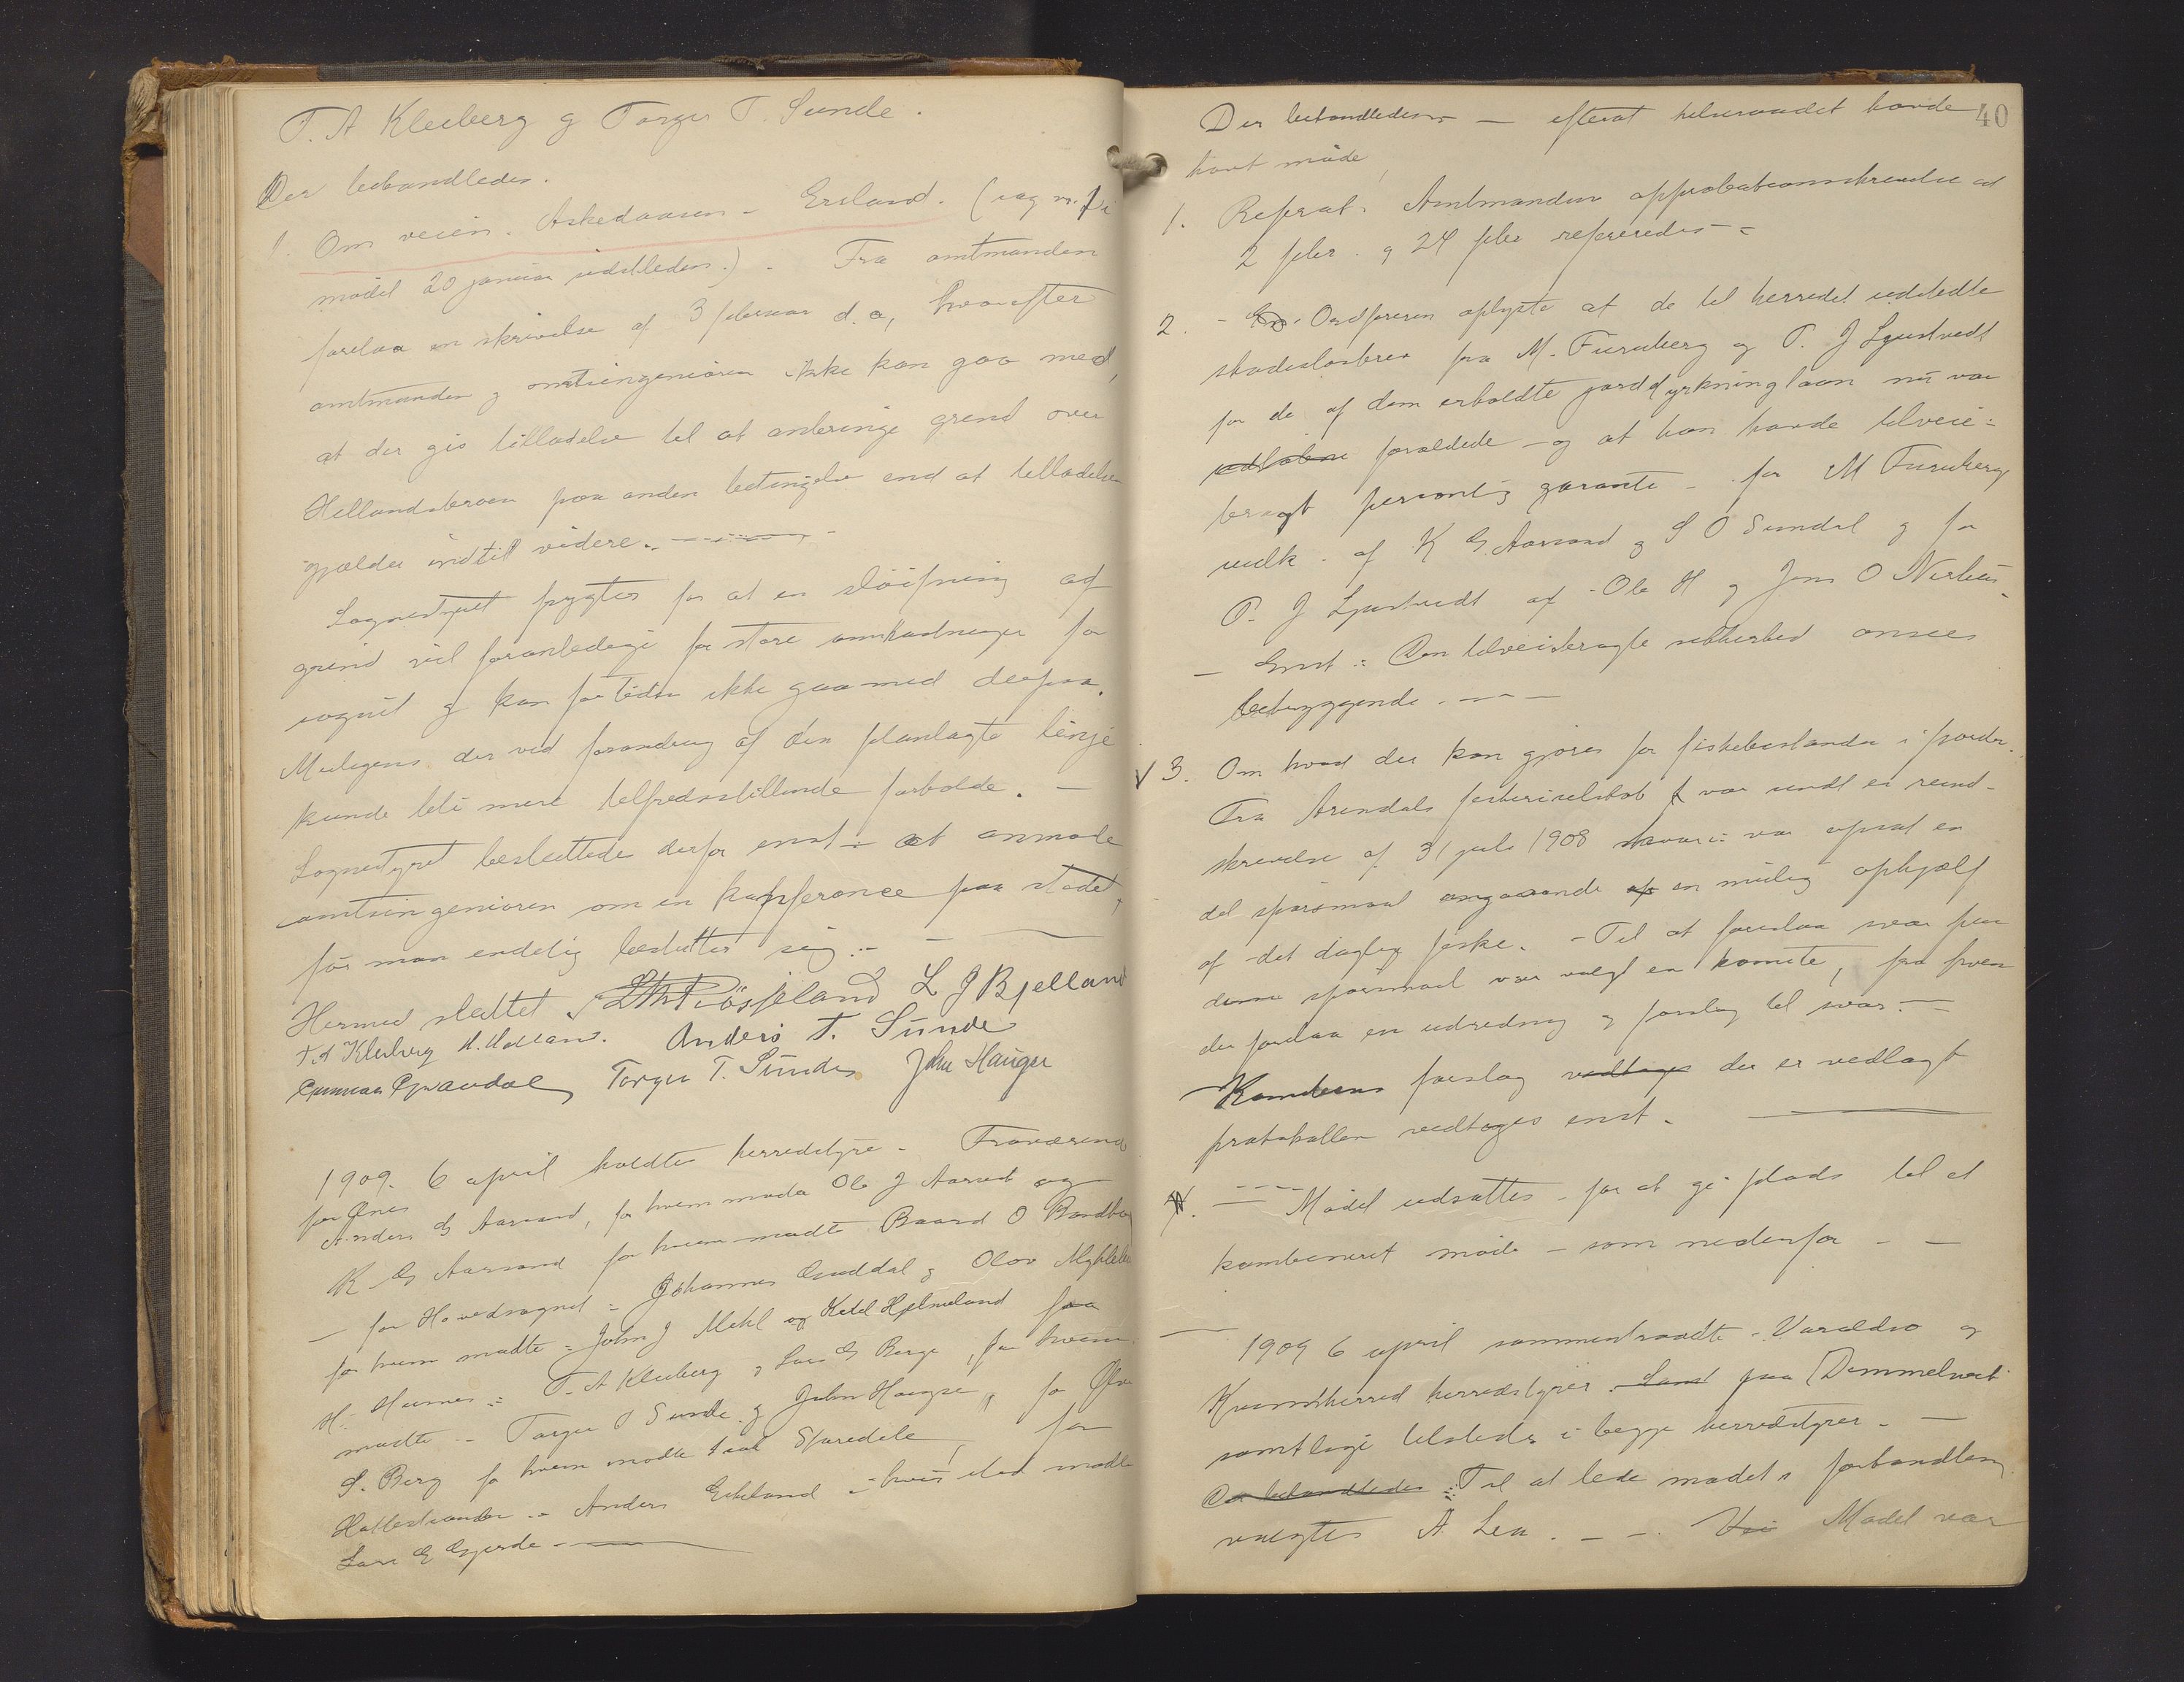 T. A Kleiberg g Torger T. Sunde.
Der behandledes.
1. Om veien. Askedaasen - Ersland. (sag nr. 1 i
mødet 20 januar sidstleden.). Fra amtmanden
forelaa en skrivelse af 3 februar d. a, hvorefter
amtmanden g amtsingeniøren ikke kan gaa med,
at der gis tilladelse til at anbringe grend over
Hellandsbroen paa anden betingelse end at tilladelsen
gjælder indtil videre.
Sognestyret frygter for at en sløifning af
grind vil foranledige for store omkostninger for
sognet g kan for tiden ikke gaa med derpaa.
Muligens der ved forandring af den planlagte linje
kunde bli mere tilfredsstillende forholde. -
Sognestyret besluttede derfor enst: at anmode
amtsingeniøren om en konferance paa stedet,
før man endelig beslutter sig.-
Hermed sluttet L J Bjelland
T A Kleiberg Anders T. Sunde
Torger T. Sunde John Hauger
1909. 6 april holdtes herredstyre - Fraværende
for Ænes
Anders G Aarsand, for hvem mødte Ole J Aarsand og
K G Aarsand for hvem mødte Baard O
- for Hovedsognet: Johannes Guddal g Olav
for hvem mødte: John J Mehl og Ketel Hjelmeland
H. Husnes: T. A Kleiberg g Lars G Berge, for hvem
mødte - Torger T Sunde g John Hauge, for Ølve
S. Berg for hvem mødte for
Hattestranden - Anders Eikeland - hvis sted mødte
Lars E Gjerde -
40
Der behandledes - efterat helseraadet havde
havt møde,
1. Referat. Amtmandens approbationsskrivelse ad
2 febr. g 24 febr refereredes -
2. - Ordføreren oplyste at de til herredet udstedte
skadesløsbrev fra M. Furuberg og T. J Ljustvedt
for de af dem erholdte jorddyrkninglaan nu var
udløbne forældede - og at han havde tilveie-
bragt personlig garanti - for M Furuberg
vedk. af K G Aarsand g S O Sundal g for
T. J Ljustvedt af Ole H g Jens O Nerhus
- Enst: Den tilveiebragte sikkerhed ansees
betryggende. -
3. Om hvad der kan gjøres for fiskebestanden i fjorden.
Fra Arendals fiskeriselskab var sendt en rund-
skrivelse af 31 juli 1908 hvori var opsat en
del spørsmaal angaaende af en mulig ophjælp
af det daglige fiske. - Til at foreslaa svar paa
disse spørsmaal var valgt en komite, fra hvem
der forelaa en udredning g forslag til svar. -
Komiteens forslag vedtoges der er vedlagt
protokollen vedtoges enst.
4. - Mødet udsattes - for at gi plads til et
kombineret møde - som nedenfor - -
1909 6 april sammentraadte Varaldsø og
Kvindherred herredstyrer. Samt paa Dimmelsvik
samtlige tilstede i begge herredstyrer. -
Der behandledes: Til at lede mødets forhandling
valgtes A Lea. - - Mødet var